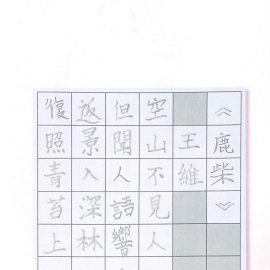 《鹿柴》
王維
空山不見人
但聞人語響
返景入深林
復照青苔上